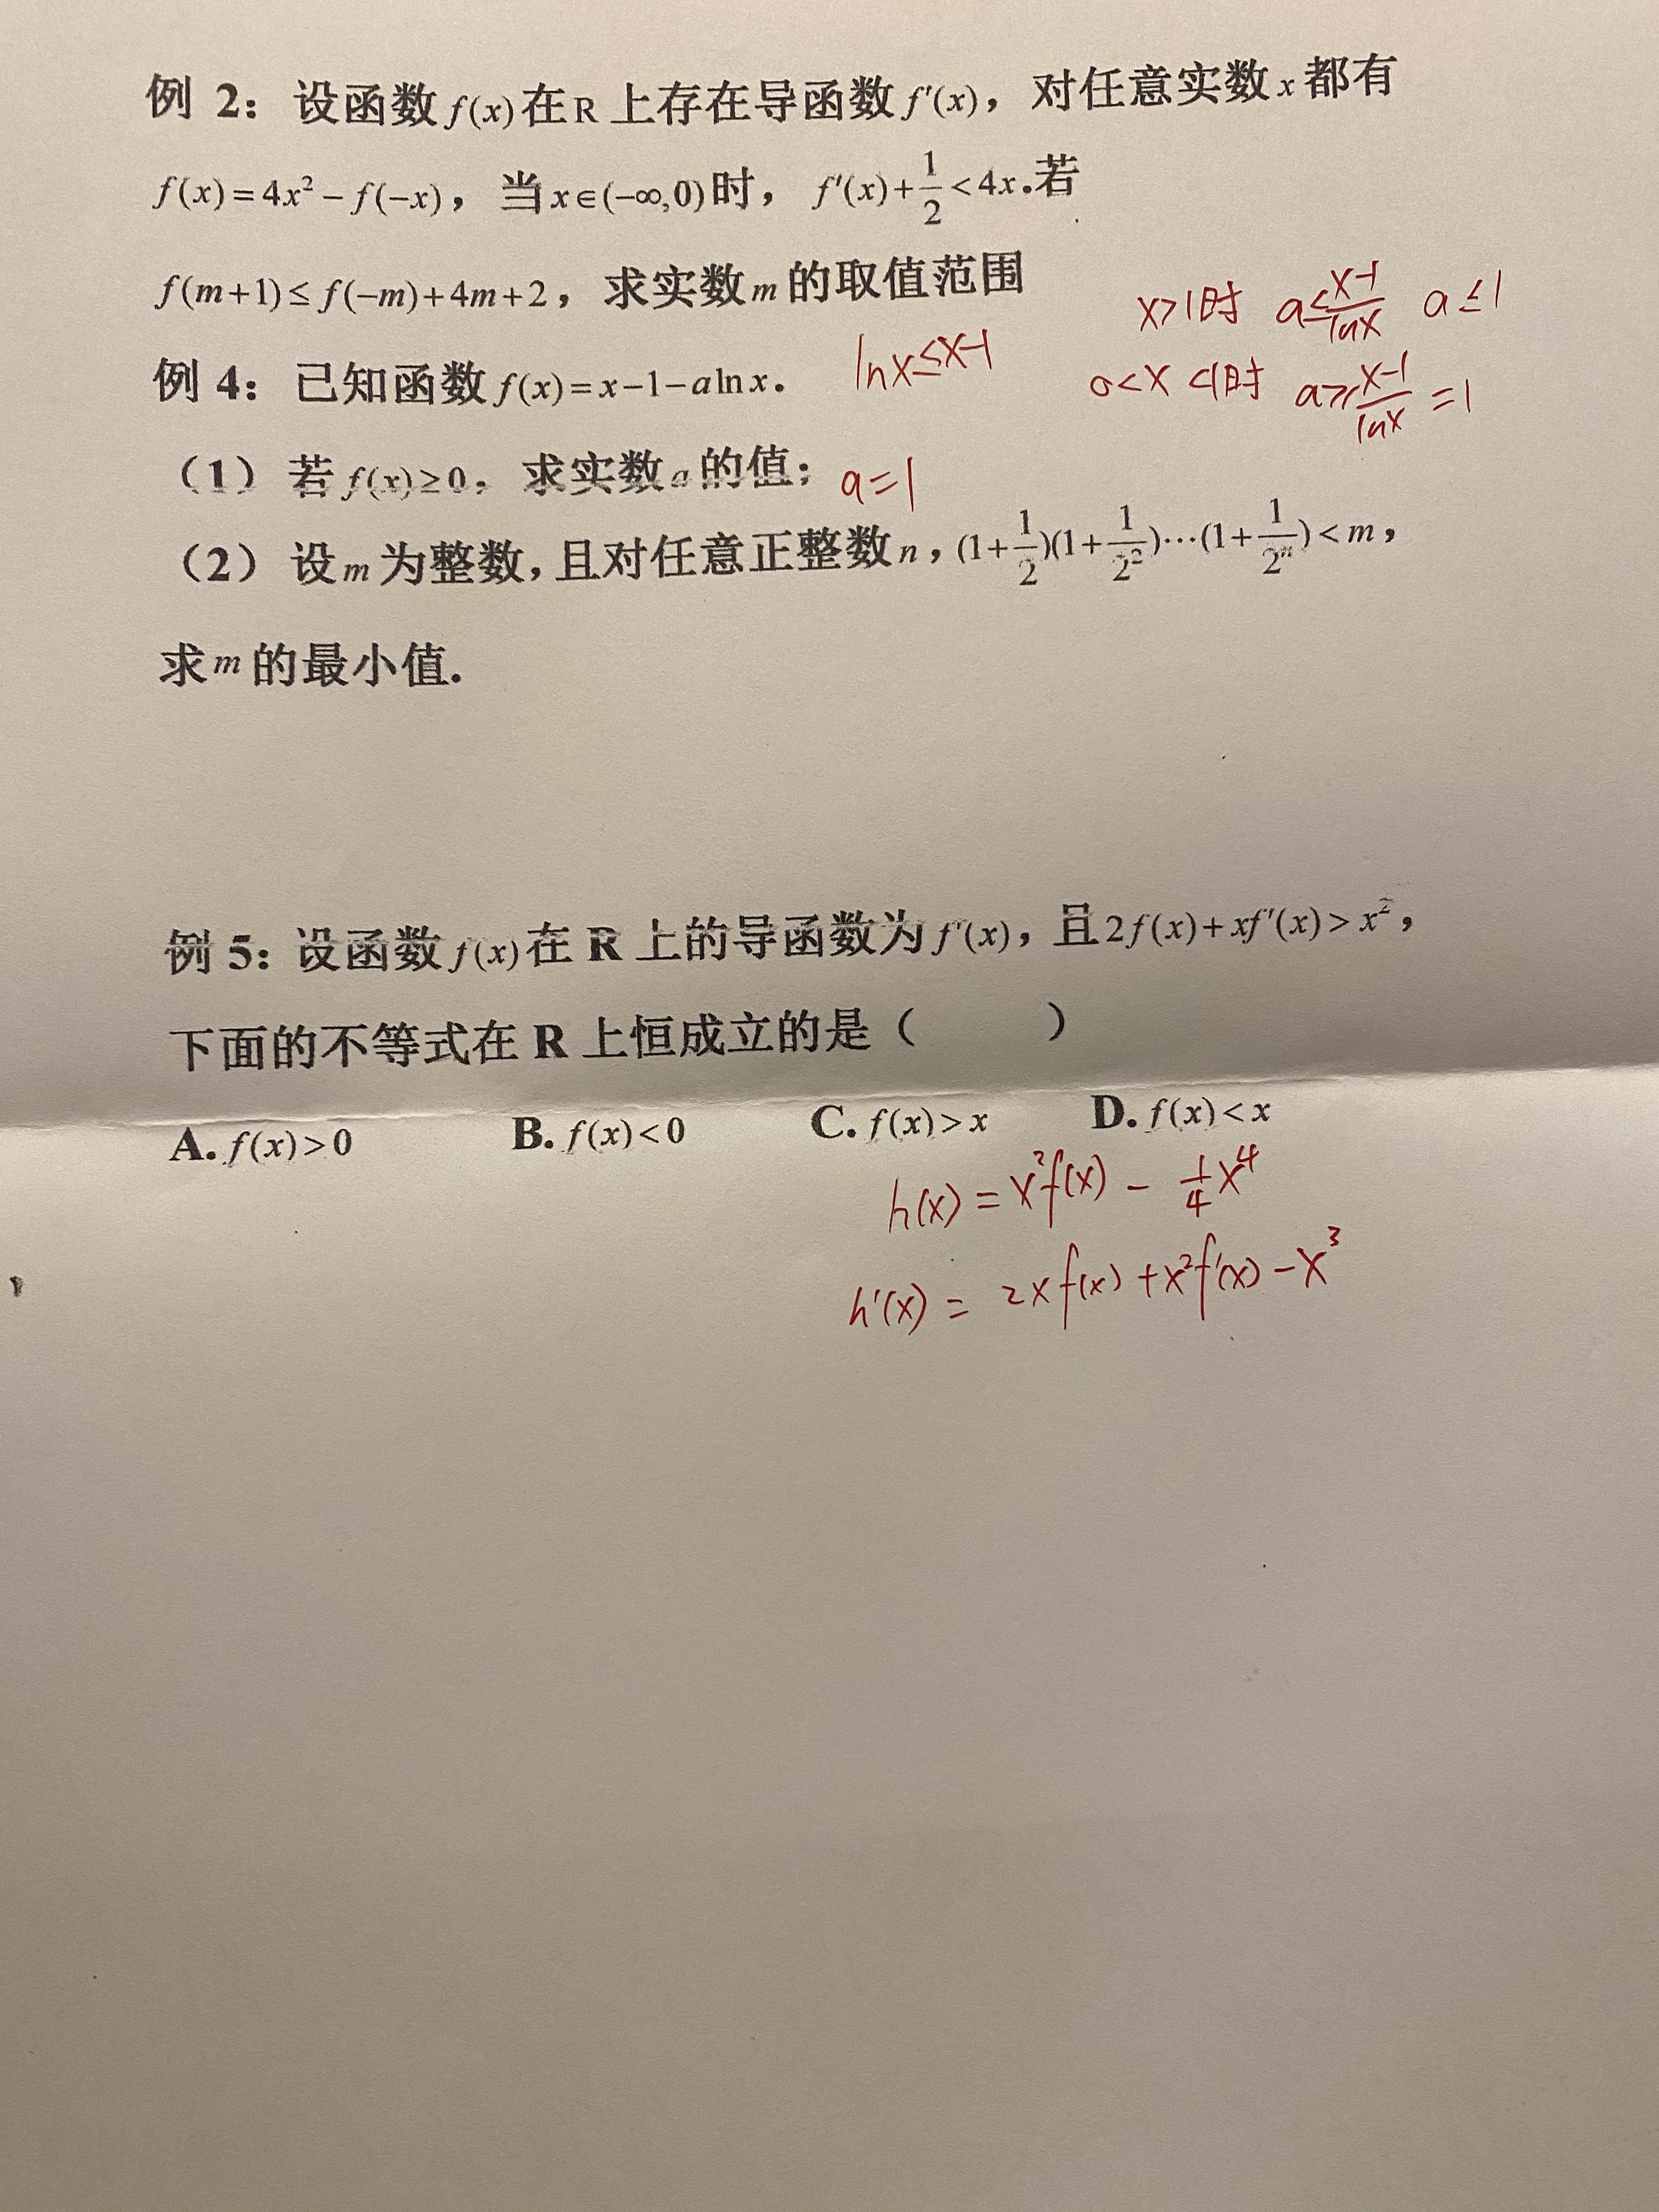 例 2：设函数 f(x) 在 R 上存在导函数 f′(x)，对任意实数 x 都有
f(x)=4x²−f(−x)，当 x∈(−∞,0) 时，f′(x)+1/2<4x.若
f(m+1)≤f(−m)+4m+2，求实数 m 的取值范围
x>1时 a≤(x-1)/lnx a≤1
例 4：已知函数 f(x)=x−1−alnx． lnx≤x-1
0<x<1时 a≥(x-1)/lnx =1
（1）若 f(x)≥0，求实数 a 的值； a=1
（2）设 m 为整数，且对任意正整数 n，(1+1/2)(1+1/2²)⋯(1+1/2ⁿ)<m，
求 m 的最小值．
例 5：设函数 f(x) 在 R 上的导函数为 f′(x)，且 2f(x)+xf′(x)>x²，
下面的不等式在 R 上恒成立的是（ ）
A. f(x)>0 B. f(x)<0 C. f(x)>x D. f(x)<x
h(x) = x²f(x) - 1/4 x⁴
h′(x) = 2xf(x)+x²f′(x)-x³